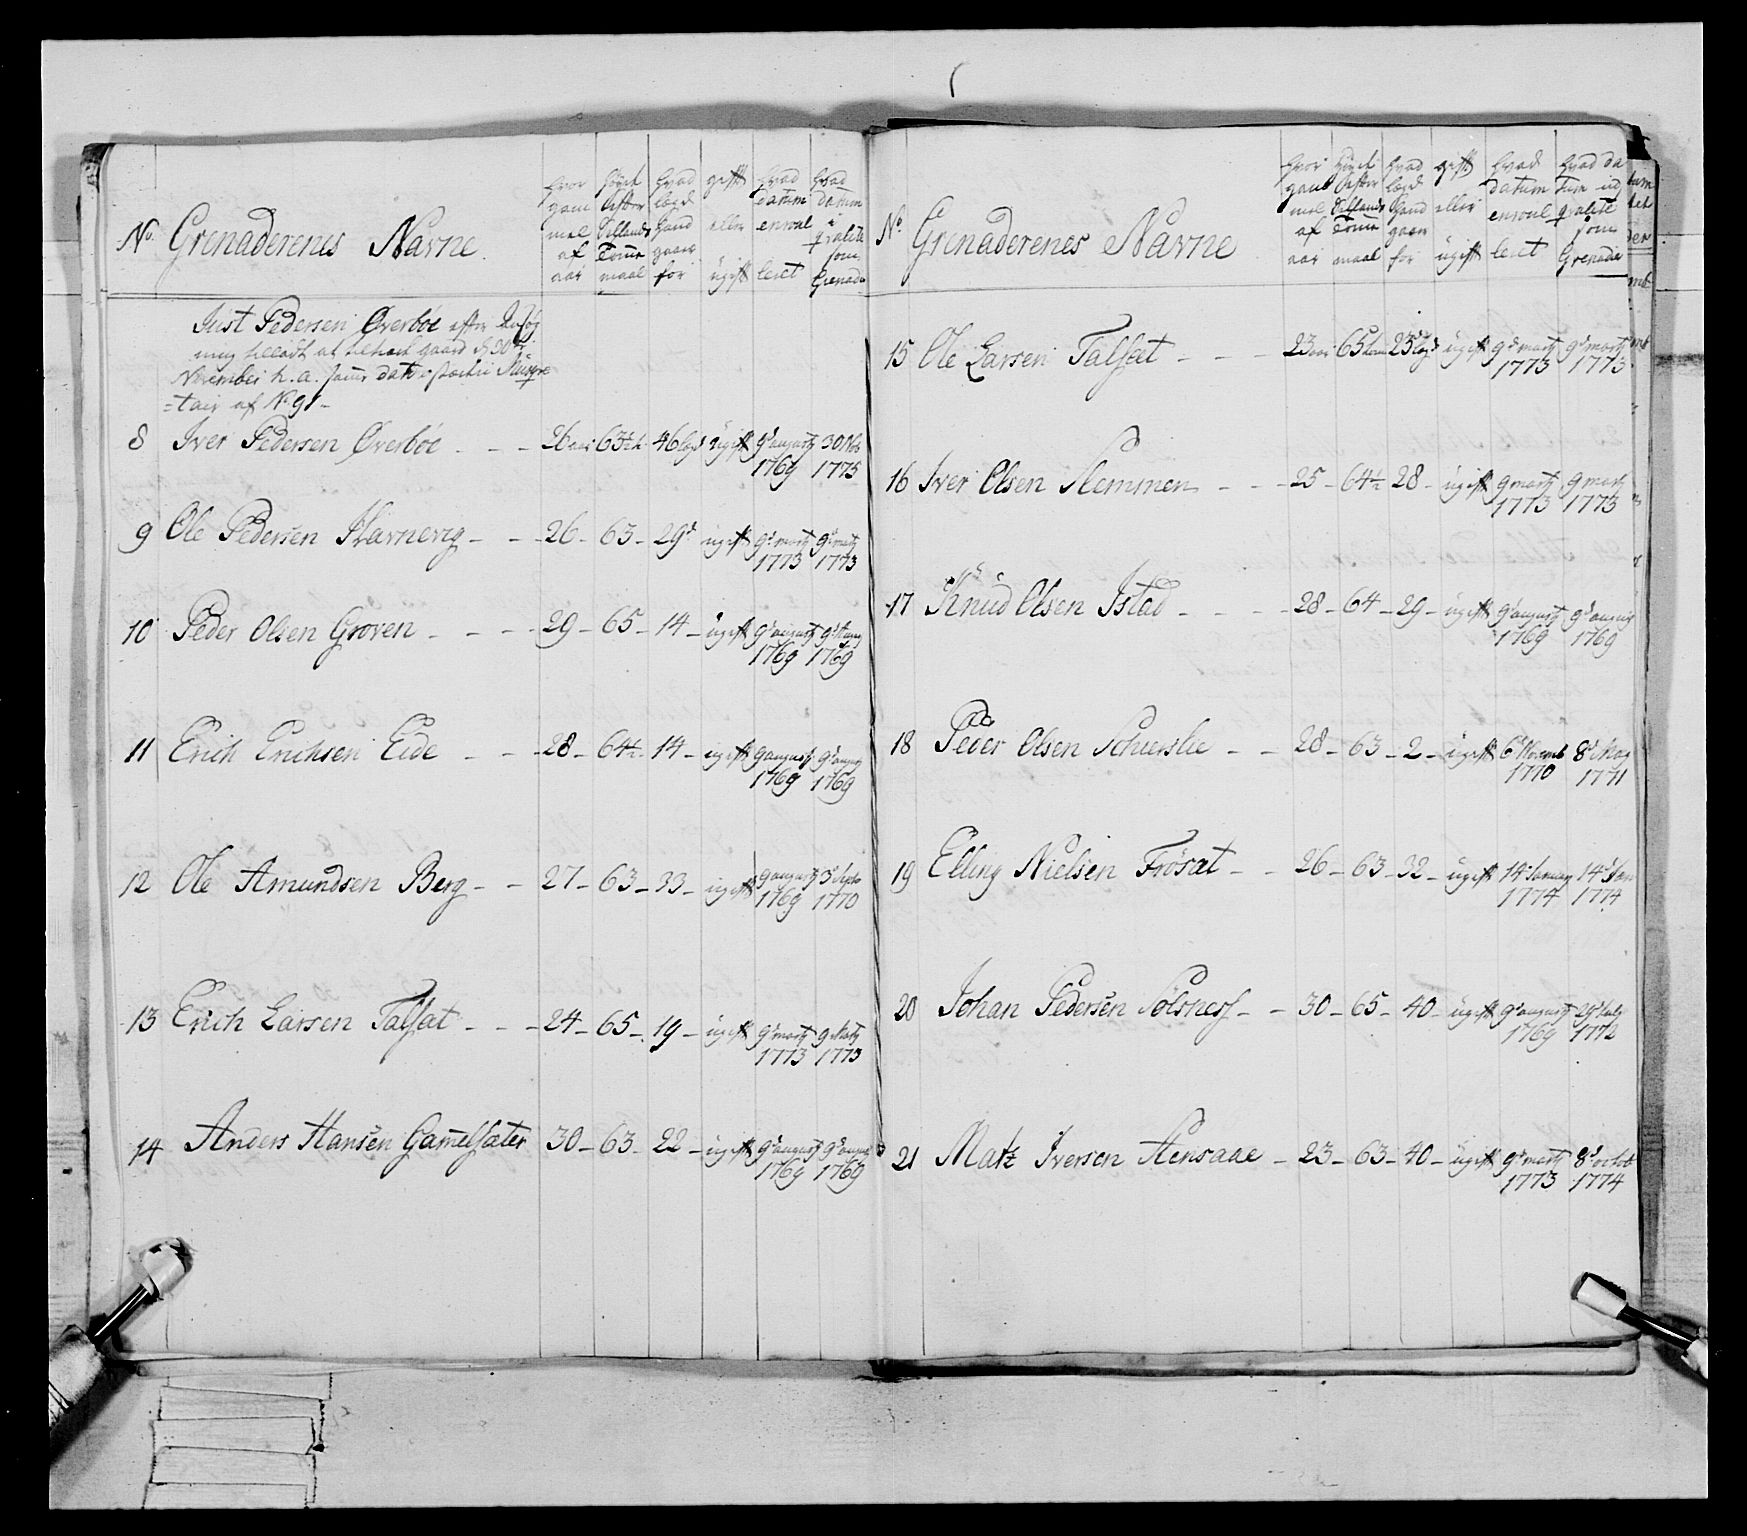 No. Grenaderenes Navne
hvor gammel af aar
høyde efter Sællands Tomme maal
hvad lægd hand gaar for
gift eller ugift
hvad datum enroulleret
hvad datum i qvalite som Grenader
Just Pedersen Øverbøe efter Ansøg
ning tilladt at
November h. a. samme dato Musqve
=tair af No 91 -
8 Iver Pedersen Øverbøe - - - 26 aar 63½ t. 46 lægd ugift 9d augusty 1769 30 Nov 1775
9 Ole Pedersen Stavnevig - - - 26 - 63 - 29d ugift 9d marty 1773 9d marty 1773
10 Peder Olsen Groven - - - - 29 - 65 - 14 - ugift 9d augusty 1769 9d Aug 1769
11 Erich Erichsen Eide - - - 28 - 64½ - 14 - ugift 9 augusty 1769 9d augusty 1769
12 Ole Amundsen Berg - - 27 - 63 - 33 - ugift 9 augusty 1769 3d Septr 1770
13 Erich Larsen Talsæt - - - 24 - 65 - 19 - ugift 9d marty 1773 9 Marty 1773
14 Anders Hansen Gamelsæter 30 - 63 - 22 - ugift 9d augusty 1769 9d augusty 1769
No. Grenaderenes Navne
hvor gammel af aar
høyde efter Sællands Tomme maal
hvad lægd hand gaar for
gift eller ugift
hvad datum enroulleret
hvad datum i qvalite som Grenader
15 Ole Larsen Talsæt - - - 23 aar 65 tom 25 lægd ugift 9d marty 1773 9d marty 1773
16 Iver Olsen Hemmen - - - 25 - 64½ 28 - ugift 9 marty 1773 9 marty 1773
17 Knud Olsen Istad - - - - 28 - 64 - 29 - ugift 9d augusty 1769 9d augusty 1769
18 Peder Olsen Schierslie - - 28 - 63 - 2 - ugift 6d Novemb 1770 8d May 1771
19 Elling Nielsen Frösæt - - 26 - 63 - 32 - ugift 14d January 1774 14d Jan 1774
20 Johan Pedersen Solsness - - 30 - 65 - 40 - ugift 9d augusty 1769 29d July 1772
21 Matz Iversen Hensaae - 23 - 63 - 40 - ugift 9d marty 1773 8d octob 1774